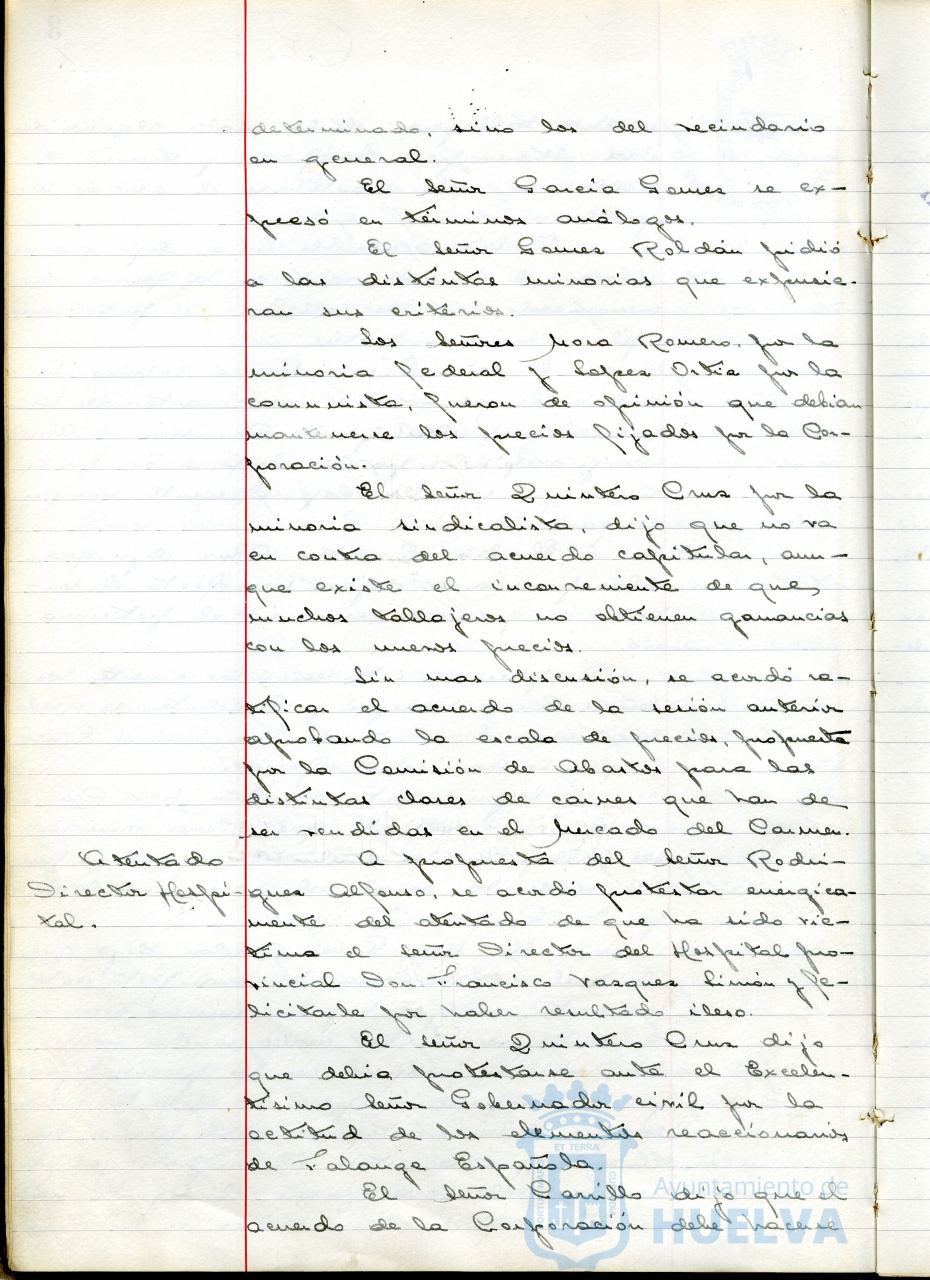 determinado, sino los del vecindario
en general.
El Señor García Gomez se ex-
presó en términos análogos.
El Señor Gomez Roldán pidió
a las distintas minorias que expusie-
ran sus critérios.
Los Señores Mora Romero, por la
minoria federal y Lopez Ortiz por la
comunista, fueron de opinión que debian
mantenerse los precios fijados por la Cor-
poración.
El Señor Quintero Cruz por la
minoria sindicalista, dijo que no va
en contra del acuerdo capitular, aun-
que existe el inconveniente de que
muchos tablajeros no obtienen ganancias
con los nuevos precios.
Sin mas discusión, se acordó ra-
tificar el acuerdo de la sesión anterior
aprobando la escala de precios, propuesta
por la Comisión de Abastos para las
distintas clases de carnes que han de
ser vendidas en el Mercado del Carmen.
Atentado
Director Hospi-
tal.
A propuesta del Señor Rodri-
guez Alfonso, se acordó protestar enérgica-
mente del atentado de que ha sido vic-
tima el señor Director del Hospital pro-
vincial Don Francisco Vazquez Limón y fe-
licitarle por haber resultado ileso.
El Señor Quintero Cruz dijo
que debia protestarse ante el Excelen-
tisimo Señor Gobernador civil por la
actitud de los elementos reaccionarios
de Falange Española.
El Señor Carrillo dijo que el
acuerdo de la Corporación debe hacerse
ET TERRÆ
Ayuntamiento de
HUELVA